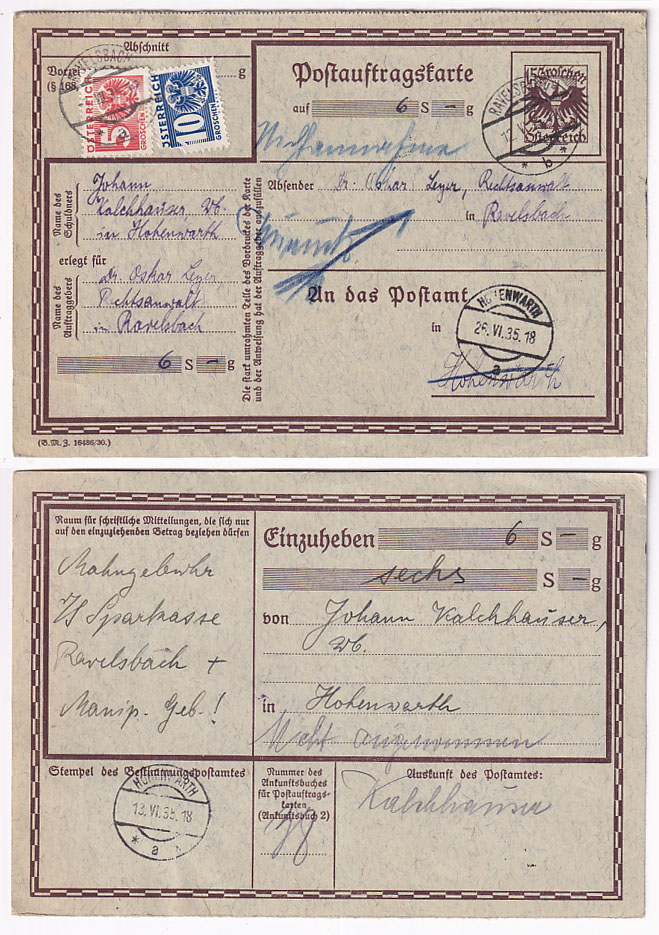 Abschnitt
Vorzei
(§ 168
g
RAVELSBACH
ÖSTERREICH
5
GROSCHEN
ÖSTERREICH
10
GROSCHEN
Postauftragskarte
auf 6 S – g
15 Groschen
Österreich
RAVELSBACH
b
Nichtannahme
Absender Dr. Oskar Leyer, Rechtsanwalt
in Ravelsbach
Zurück
An das Postamt
in
Hohenwarth
HOHENWARTH
26.VI.35.18
a
Name des
Schuldners
Johann
Kalchhauser, Wb.
in Hohenwarth
erlegt für
Name des
Auftraggebers
Dr. Oskar Leyer
Rechtsanwalt
in Ravelsbach
6 S – g
Die stark umrahmten Teile des Vordruckes der Karte
und der Anweisung hat der Auftraggeber auszufüllen
(B. M. Z. 16486/30.)
Raum für schriftliche Mitteilungen, die sich nur
auf den einzuziehenden Betrag beziehen dürfen
Mahngebühr
Sparkasse
Ravelsbach +
Manip. Geb.!
Einzuheben 6 S – g
sechs S – g
von Johann Kalchhauser,
Wb.
in Hohenwarth
Nicht angenommen
Stempel des Bestimmungspostamtes
HOHENWARTH
13.VI.35.18
* a *
Nummer des
Ankunftsbuches
für Postauftrags-
karten
(Ankunftsbuch 2)
Auskunft des Postamtes:
Kalchhauser